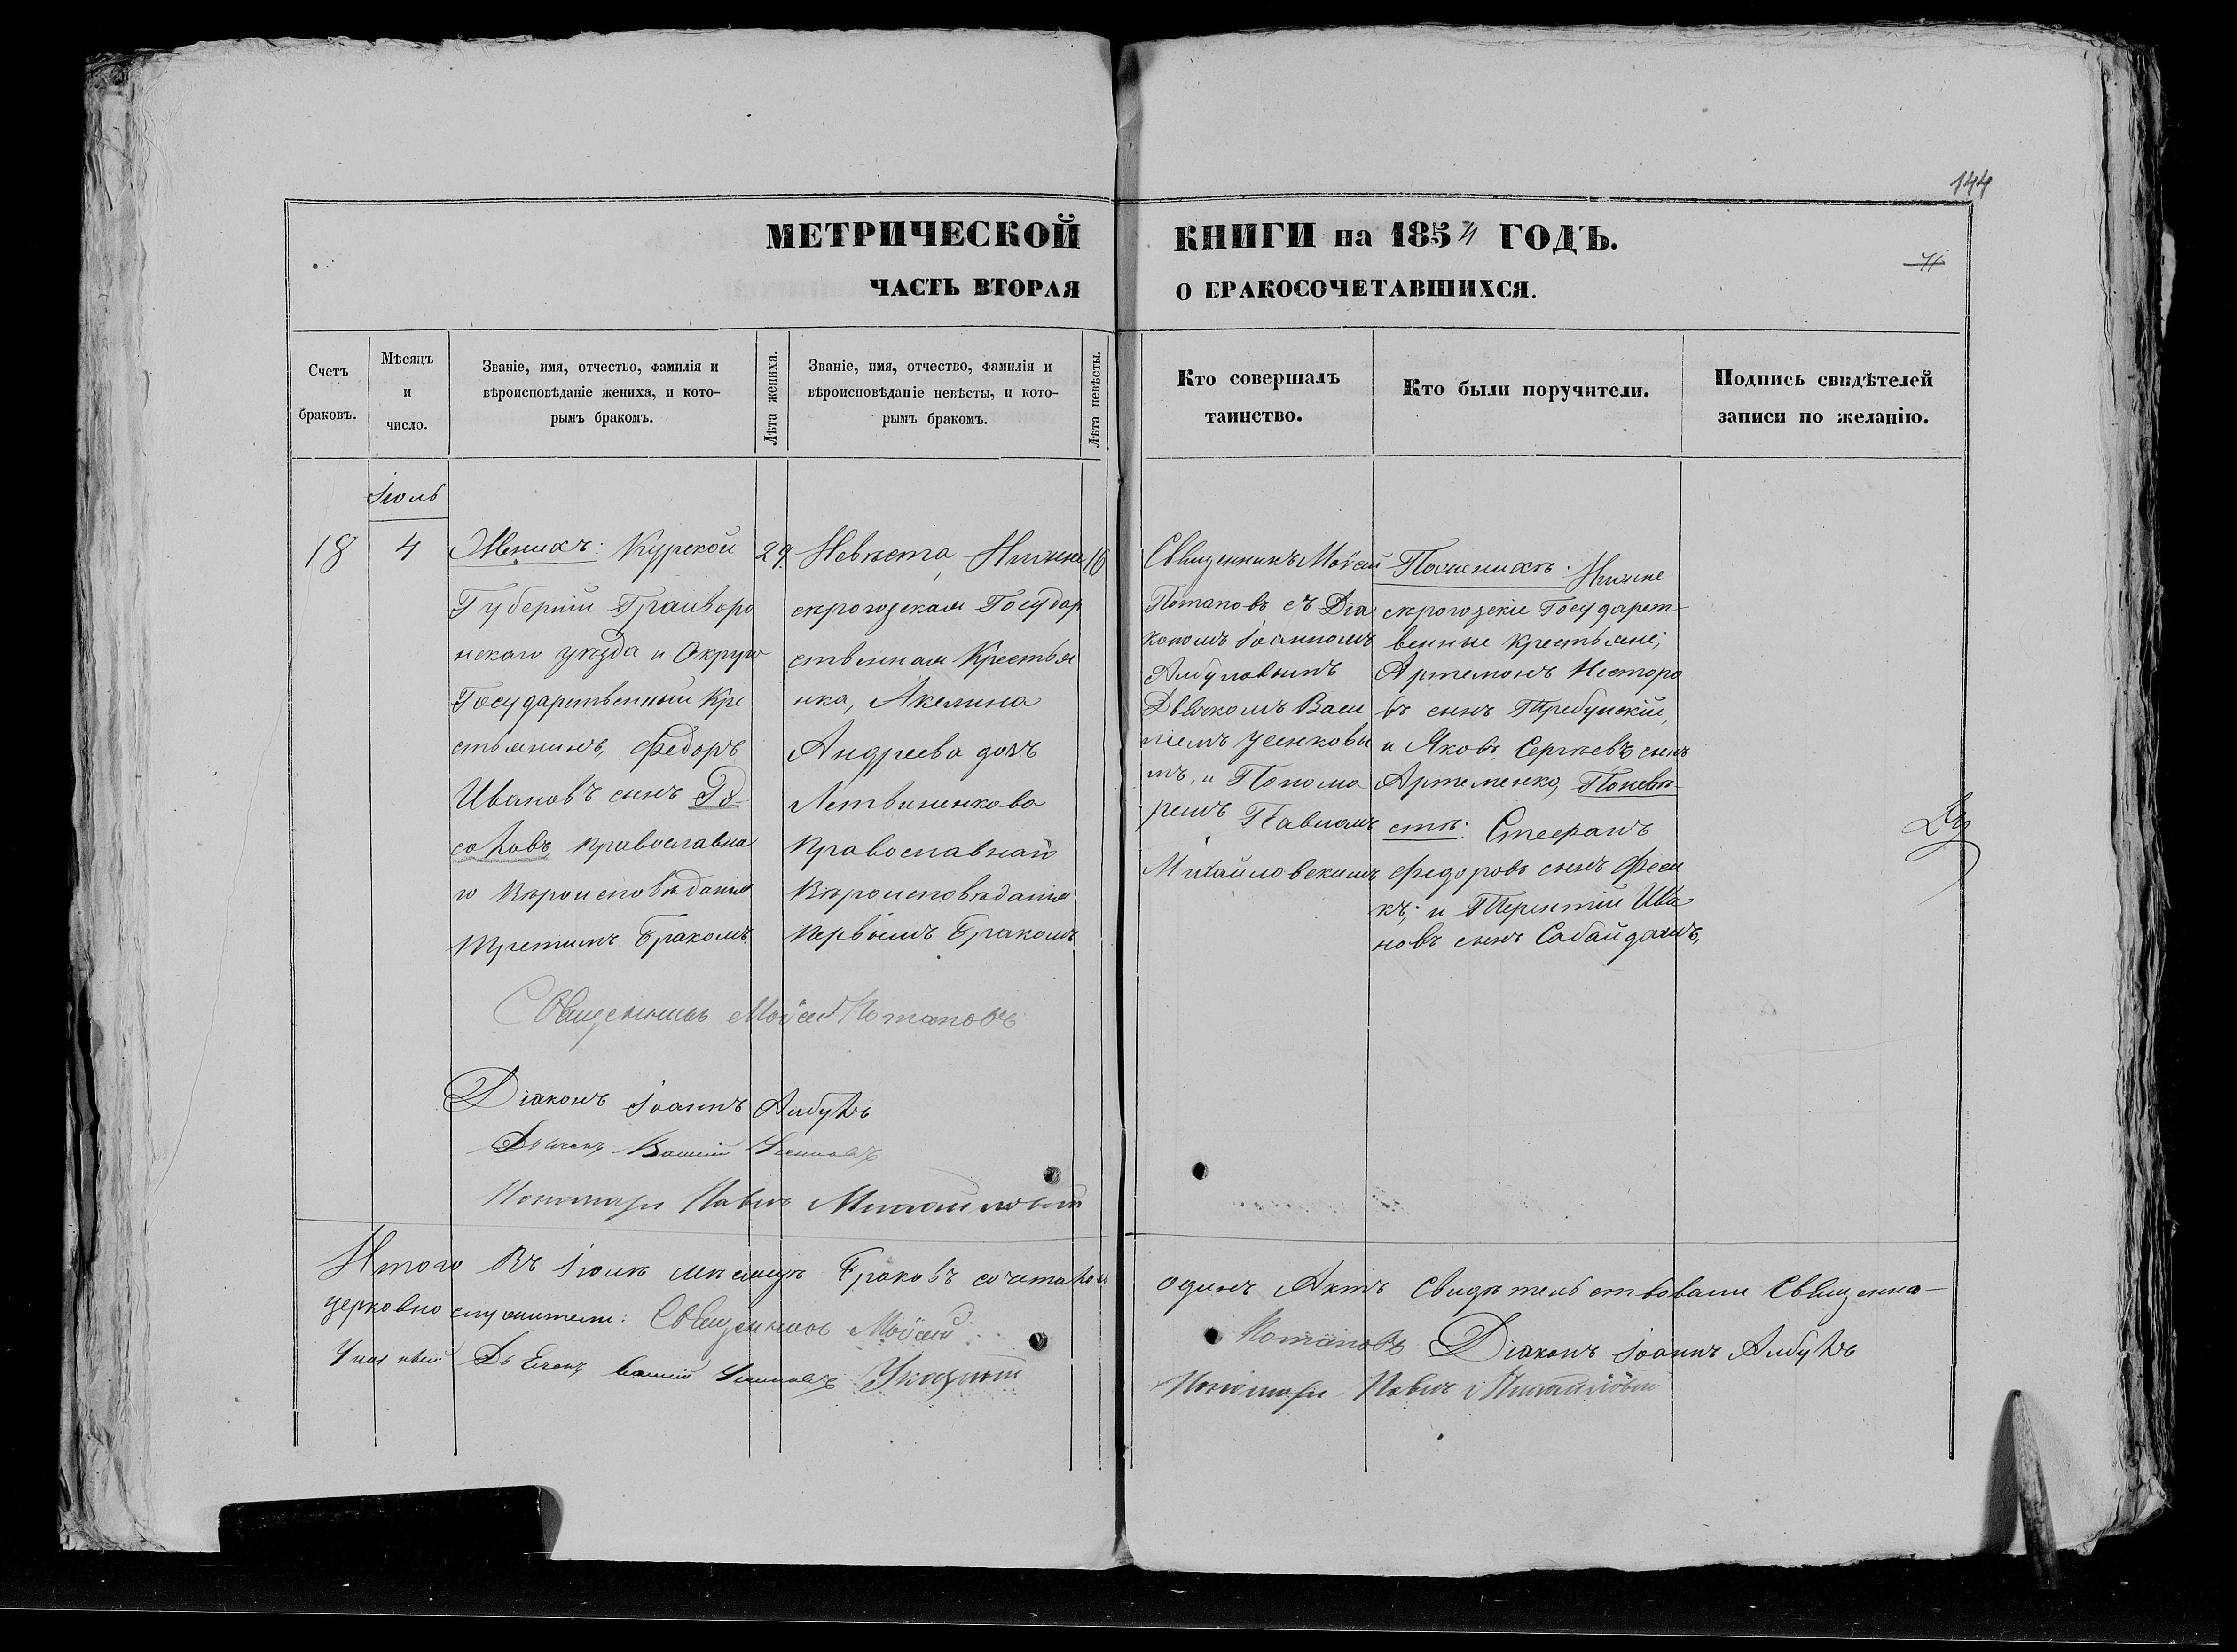 144
МЕТРИЧЕСКОЙ КНИГИ на 1854 ГОДЪ.
ЧАСТЬ ВТОРАЯ О БРАКОСОЧЕТАВШИХСЯ.
Счетъ
браковъ.
Мѣсяцъ
и
число.
Званіе, имя, отчество, фамилія и
вѣроисповѣданіе жениха, и кото-
рымъ бракомъ.
Лѣта жениха.
Званіе, имя, отчество, фамилія и
вѣроисповѣданіе невѣсты, и кото-
рымъ бракомъ.
Лѣта невѣсты.
Кто совершалъ
таинство.
Кто были поручители.
Подпись свидѣтелей
записи по желанію.
Іюль
18
4
Женихъ: Курской
Губерніи Граиворо
нскаго уѣзда и Округа
Государственный Кре
стьянинъ, Федоръ
Ивановъ сынъ
православна
го Вѣроисповѣданія
третимъ Бракомъ
29
Невѣста, Нижне
скрогозская Государ
ственная Крестья
нка, Акелина
Андреева дочь
Летвиненкова
Православнаго
Вѣроисповѣданія
Первымъ Бракомъ
16
Священникъ Моѵсей
Потаповъ съ Діа
кономъ Іоанномъ
Дьячкомъ Васи
ліемъ Усенковы
мъ, и Понома
ремъ Павломъ
Михайловскимъ
Поженихѣ: Нижне
скрогозскіе Государст-
венные крестьяне;
Артемонъ Несторо
въ сынъ Требунскій,
и Яковъ Сергѣевъ сынъ
Артеменко, Поневѣ-
стѣ: Стефанъ
Федоровъ сынъ Феси
къ; и Терентій Ива
новъ сынъ Сабайдашъ,
Священникъ Моѵсей Потаповъ
Діаконъ Іоаннъ
Дьячекъ Василій Усенковъ
Пономарь Павелъ Михайловскій
Итого Въ Іюлѣ мѣсяцѣ Браковъ сочетаном одинъ Актъ Свидѣтельствовали Священно-
церковно служители: Священникъ Моѵсей Потаповъ Діаконъ Іоаннъ
Дьячекъ Василій Усенковъ Указный Пономарь Павелъ Михайловскій